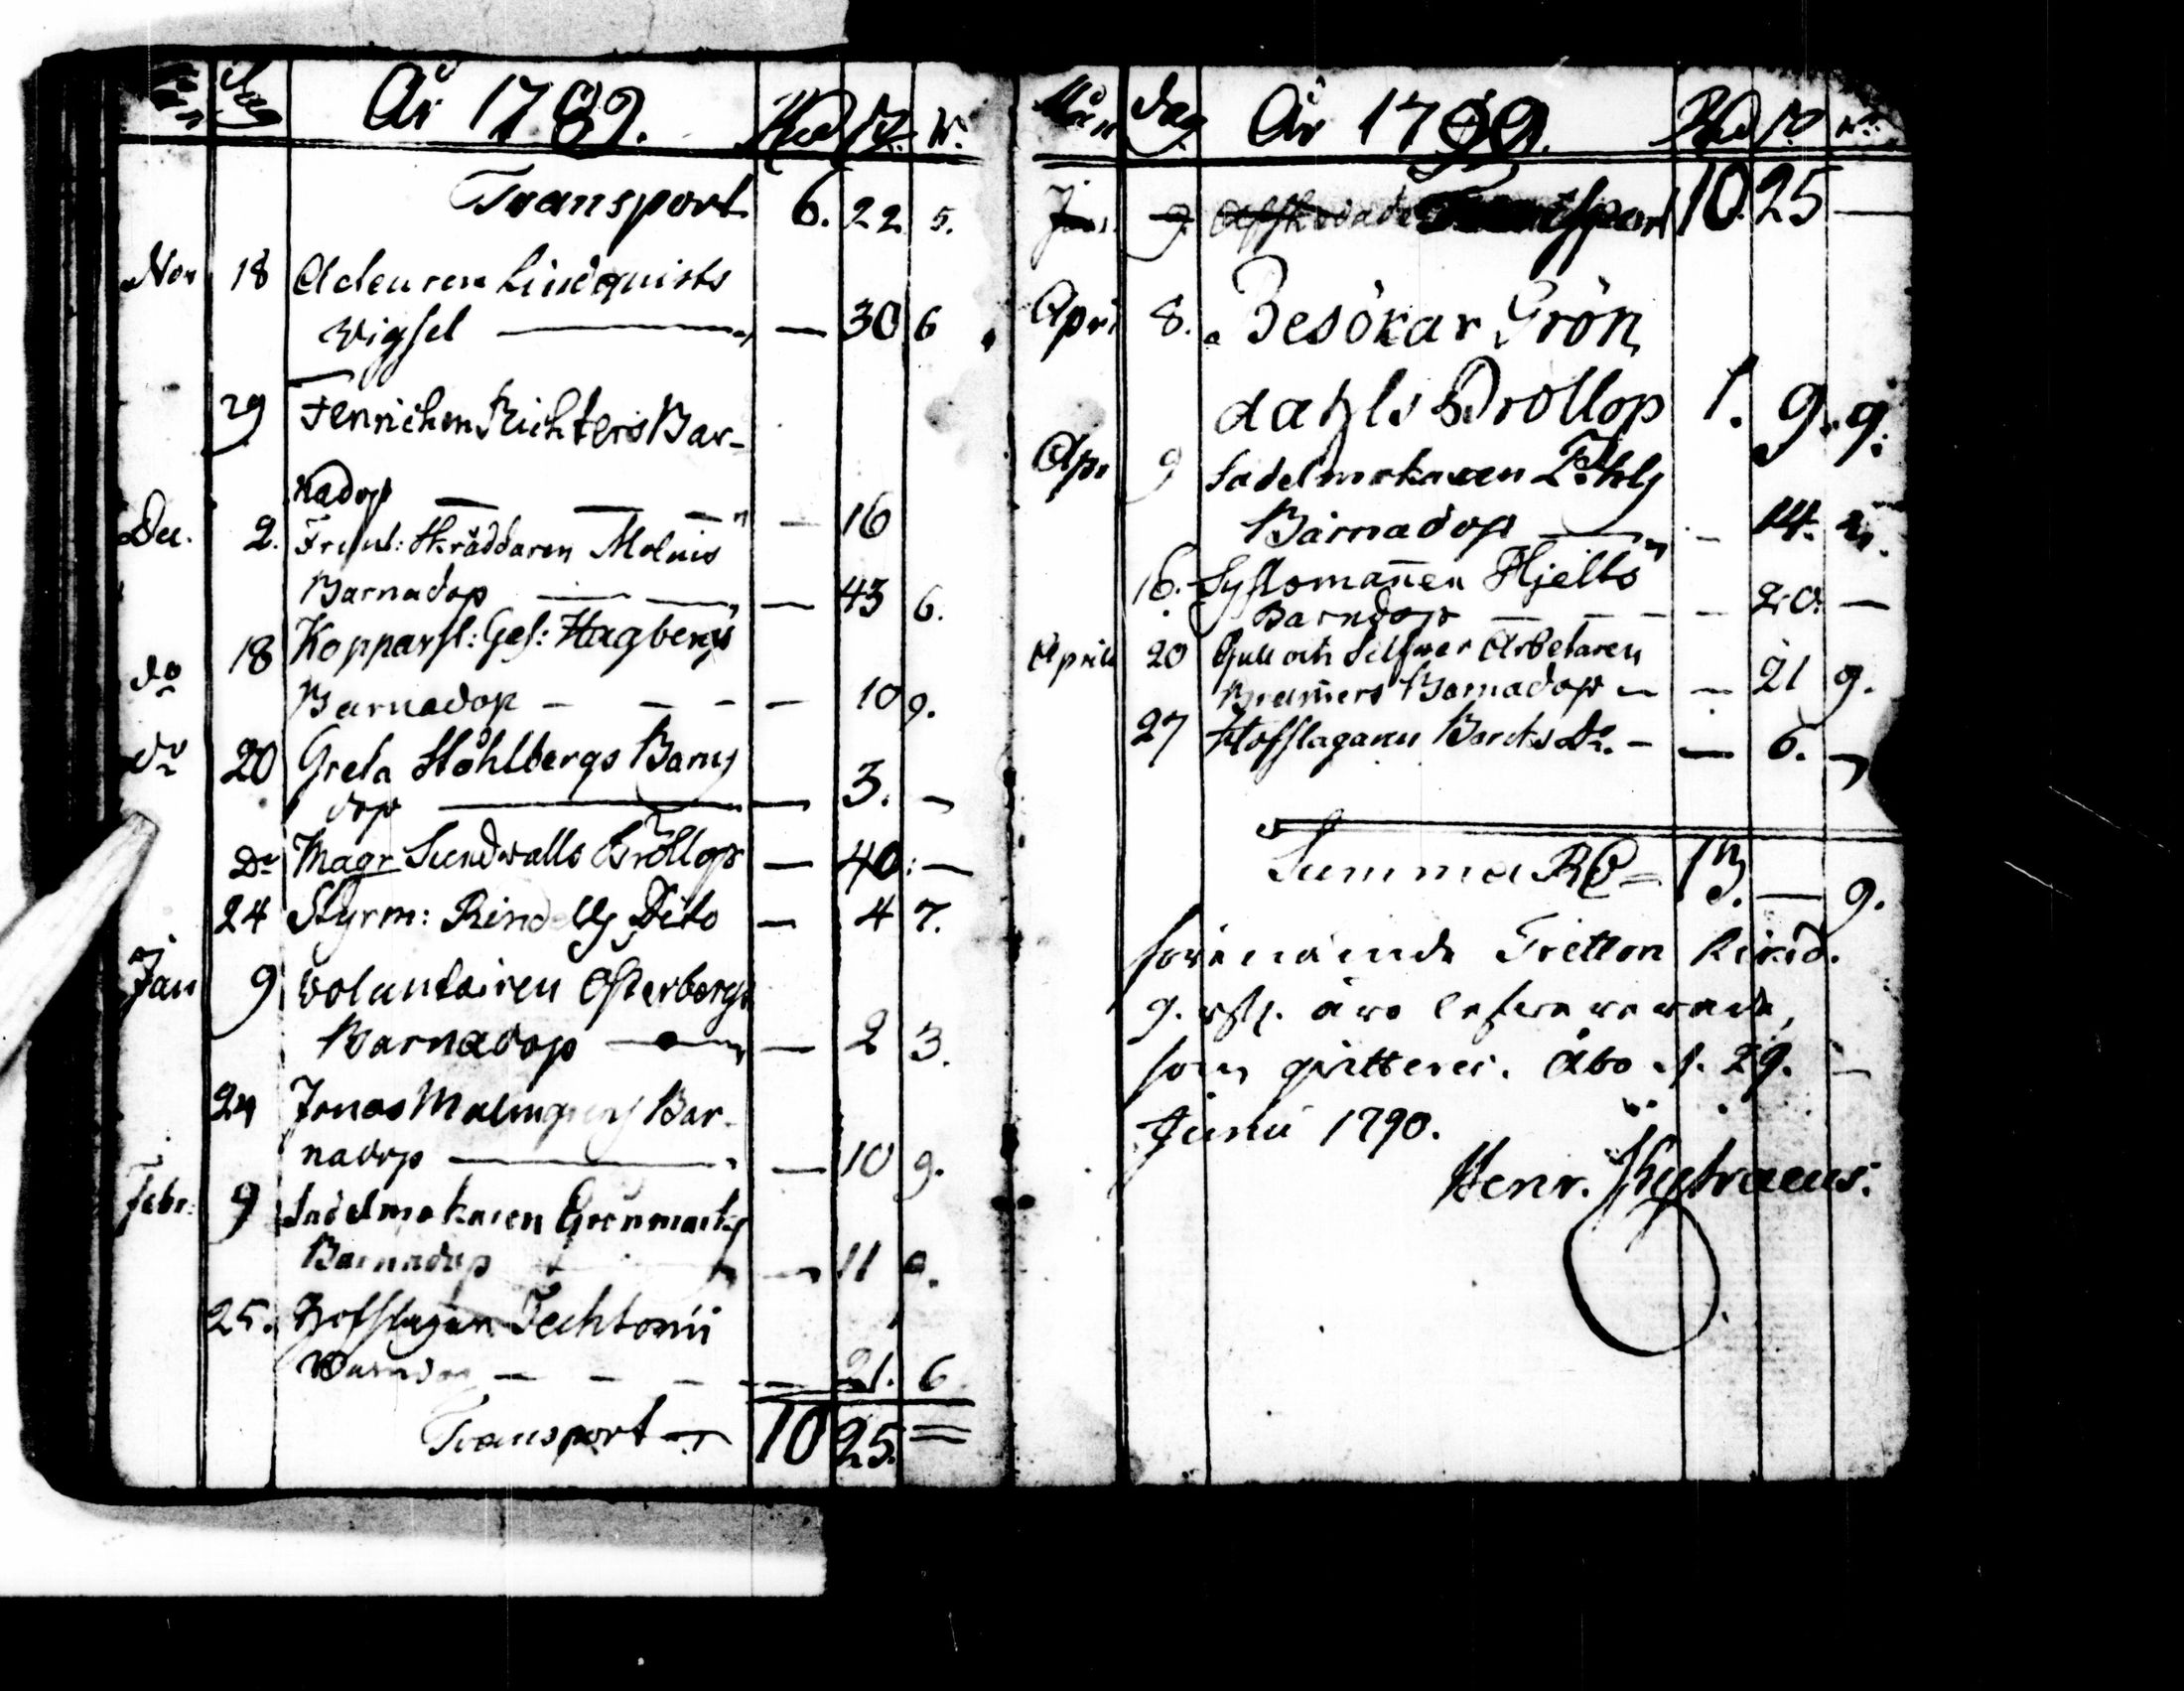 Mån Dag År 1789. Rd ß. r.
Transport 6. 22. 5.
Nov 18 Acteuren Lindquists
Wigsel — 30 6
29 Fenrichen Richters Bar-
nadop — — — — 16
Dec. 2. Skräddaren Molnis
Barnadop — — — 43 6.
do 18 Kopparsl: Ges: Hagbergs
Barnadop — — — — 10 9.
do 20 Greta Ståhlbergs Barns
dop — — 3. —
Do Magr Sundwalls Bröllop — 40: —
24 Styrm: Dito — 4 7.
Jan 9 Volontairen Österbergs
Barnadop — — 2 3.
24 Jonas Malmqvists Bar-
nadop — — 10 9.
Febr: 9 Sadelmakaren Grönmarks
Barnadop — 11
25. Hofslagaren Techtonii
Barnadop — — — — 21. 6
Transport — 10 25. =
Mån Dag. År 1789. Rd ß r.
Jan. 9. Afskedade Transport 10. 25 —
Apri 8. Besökar Grön
dahls Bröllop 1. 9. 9.
Apr 9 Sadelmakaren
Barnadop — — 14. 2.
16. Sysslomannen Hjelts
Barndop — — — — 20. —
April 20 Gull och Silfwer Arbetaren
Bremers Barnadop — — 21 9.
27 Hofslagaren Do. — — 6. —
Summa Rd = 13. — 9.
förenämnde Tretton Riksd.
9. rst. äro lefwererade,
som qvitteres. Åbo d. 29.
Junii 1790.
Henr.